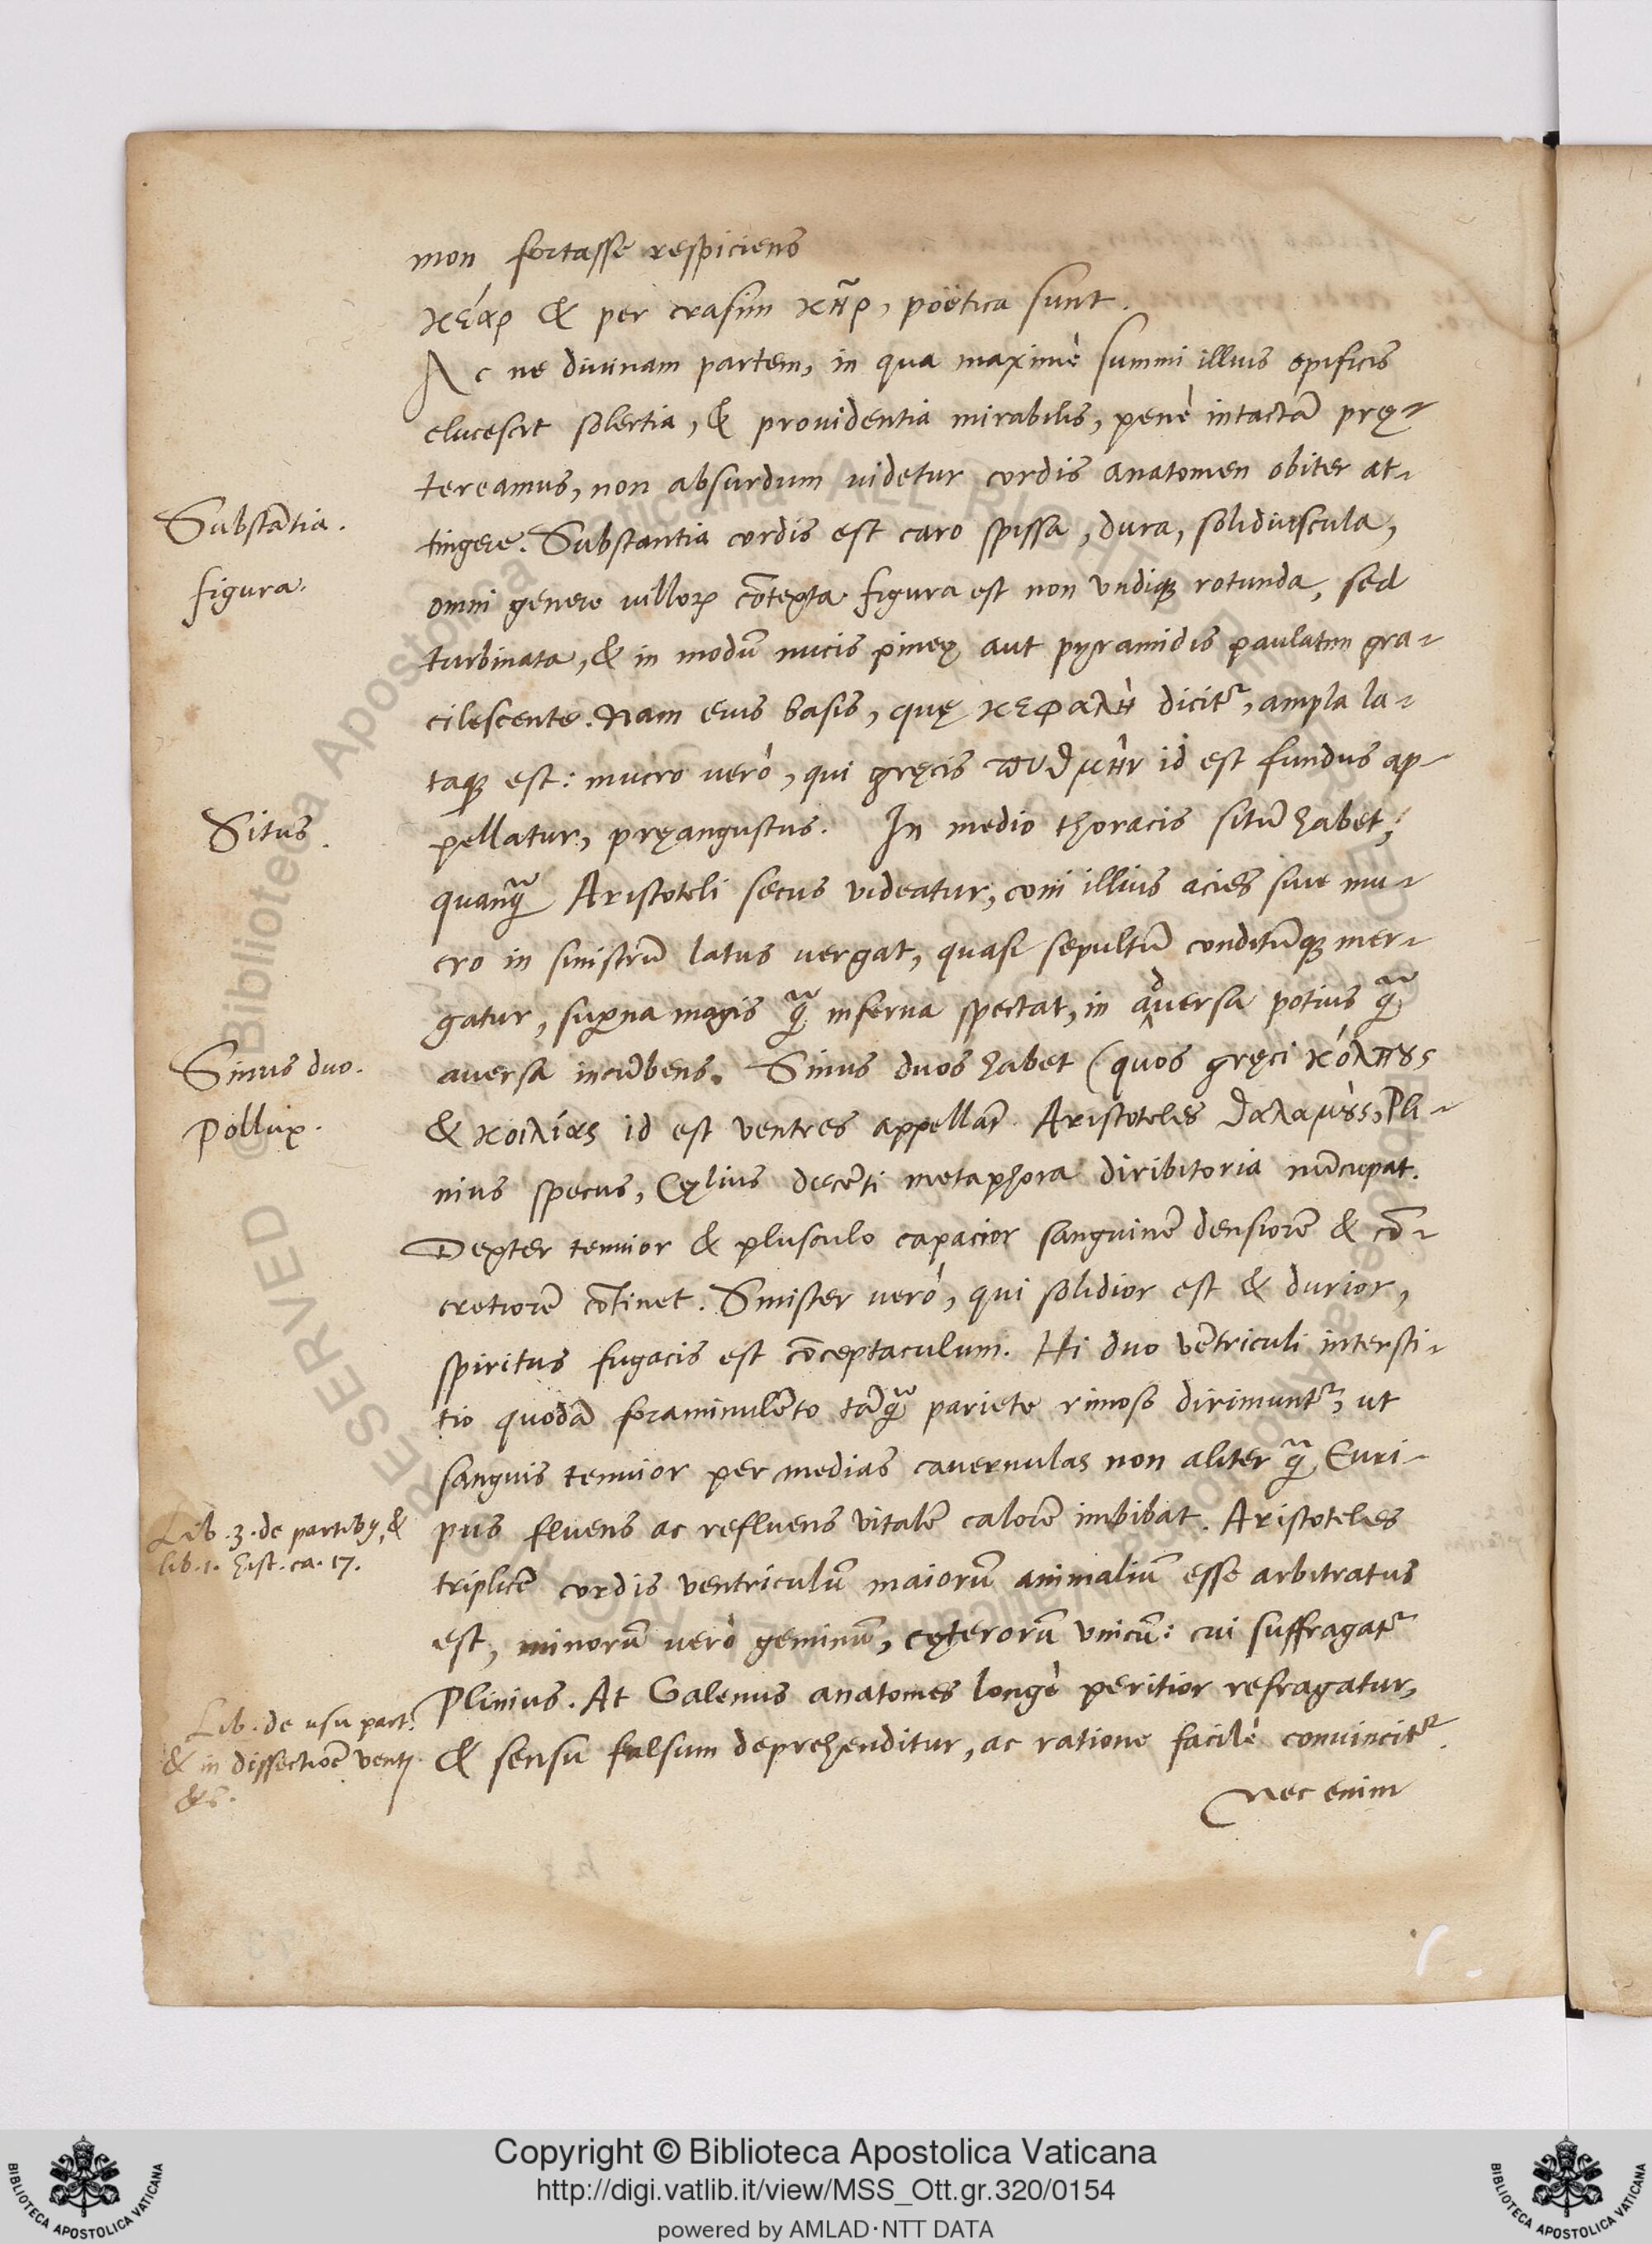 mon fortasse respiciens
κέαρ & per crasim κῆρ, poëtica sunt.
Ac ne diuinam partem, in qua maximè summi illius opificis
elucescit solertia, & prouidentia mirabilis, penè intactā prę-
tereamus, non absurdum uidetur cordis anatomen obiter at-
Substātia.
tingere. Substantia cordis est caro spissa, dura, solidiuscula,
figura.
omni genere uilloꝝ cōtexta. figura est non vndiqꝫ rotunda, sed
turbinata, & in modū nucis pineę aut pyramidis paulatim gra-
cilescente. Nam eius basis, quę κεφαλὴ dicitᷣ, ampla la-
taqꝫ est: mucro uerò, qui gręcis πυθμὴν id est fundus ap-
Situs.
pellatur, pręangustus. In medio thoracis sitū habet,
quanq̃ Aristoteli secus videatur, coni illius acies siue mu-
cro in sinistrū latus vergat, quasi sepultū conditūqꝫ mer-
gatur, supna magis q̃ inferna spectat, in aduersa potius q̃
Sinus duo.
auersa incūbens. Sinus duos habet (quos gręci κόλπȣς
Pollux.
& κοιλίας id est ventres appellāt. Aristoteles θαλαμὲς, Pli-
nius specus, Cęlius decēti metaphora diribitoria nūcupat.
Dexter tenuior & plusculo capacior sanguinē densiorē & cō-
cretiorē cōtinet. Sinister uerò, qui solidior est & durior,
spiritus fugacis est cōceptaculum. Hi duo vētriculi intersti-
tio quodā foraminulēto tāq̃ pariete rimoso dirimuntᷣ, ut
sanguis tenuior per medias cauernulas non aliter q̃ Euri-
Lib. 3. de partibꝫ, &
lib. 1. hist. ca. 17.
pus fluens ac refluens vitalē calorē imbibat. Aristoteles
triplicē cordis ventriculū maiorū animaliū esse arbitratus
est, minorū uerò geminū, cęterorū vnicū: cui suffragatᷣ
Lib. de usu part.
& in dissectiōe ventᷣ.
&c.
Plinius. At Galenus anatomes longè peritior refragatur,
& sensu falsum deprehenditur, ac ratione facilè conuincitᷣ.
Nec enim
Copyright © Biblioteca Apostolica Vaticana
http://digi.vatlib.it/view/MSS_Ott.gr.320/0154
powered by AMLAD·NTT DATA
BIBLIOTECA APOSTOLICA VATICANA
BIBLIOTECA APOSTOLICA VATICANA